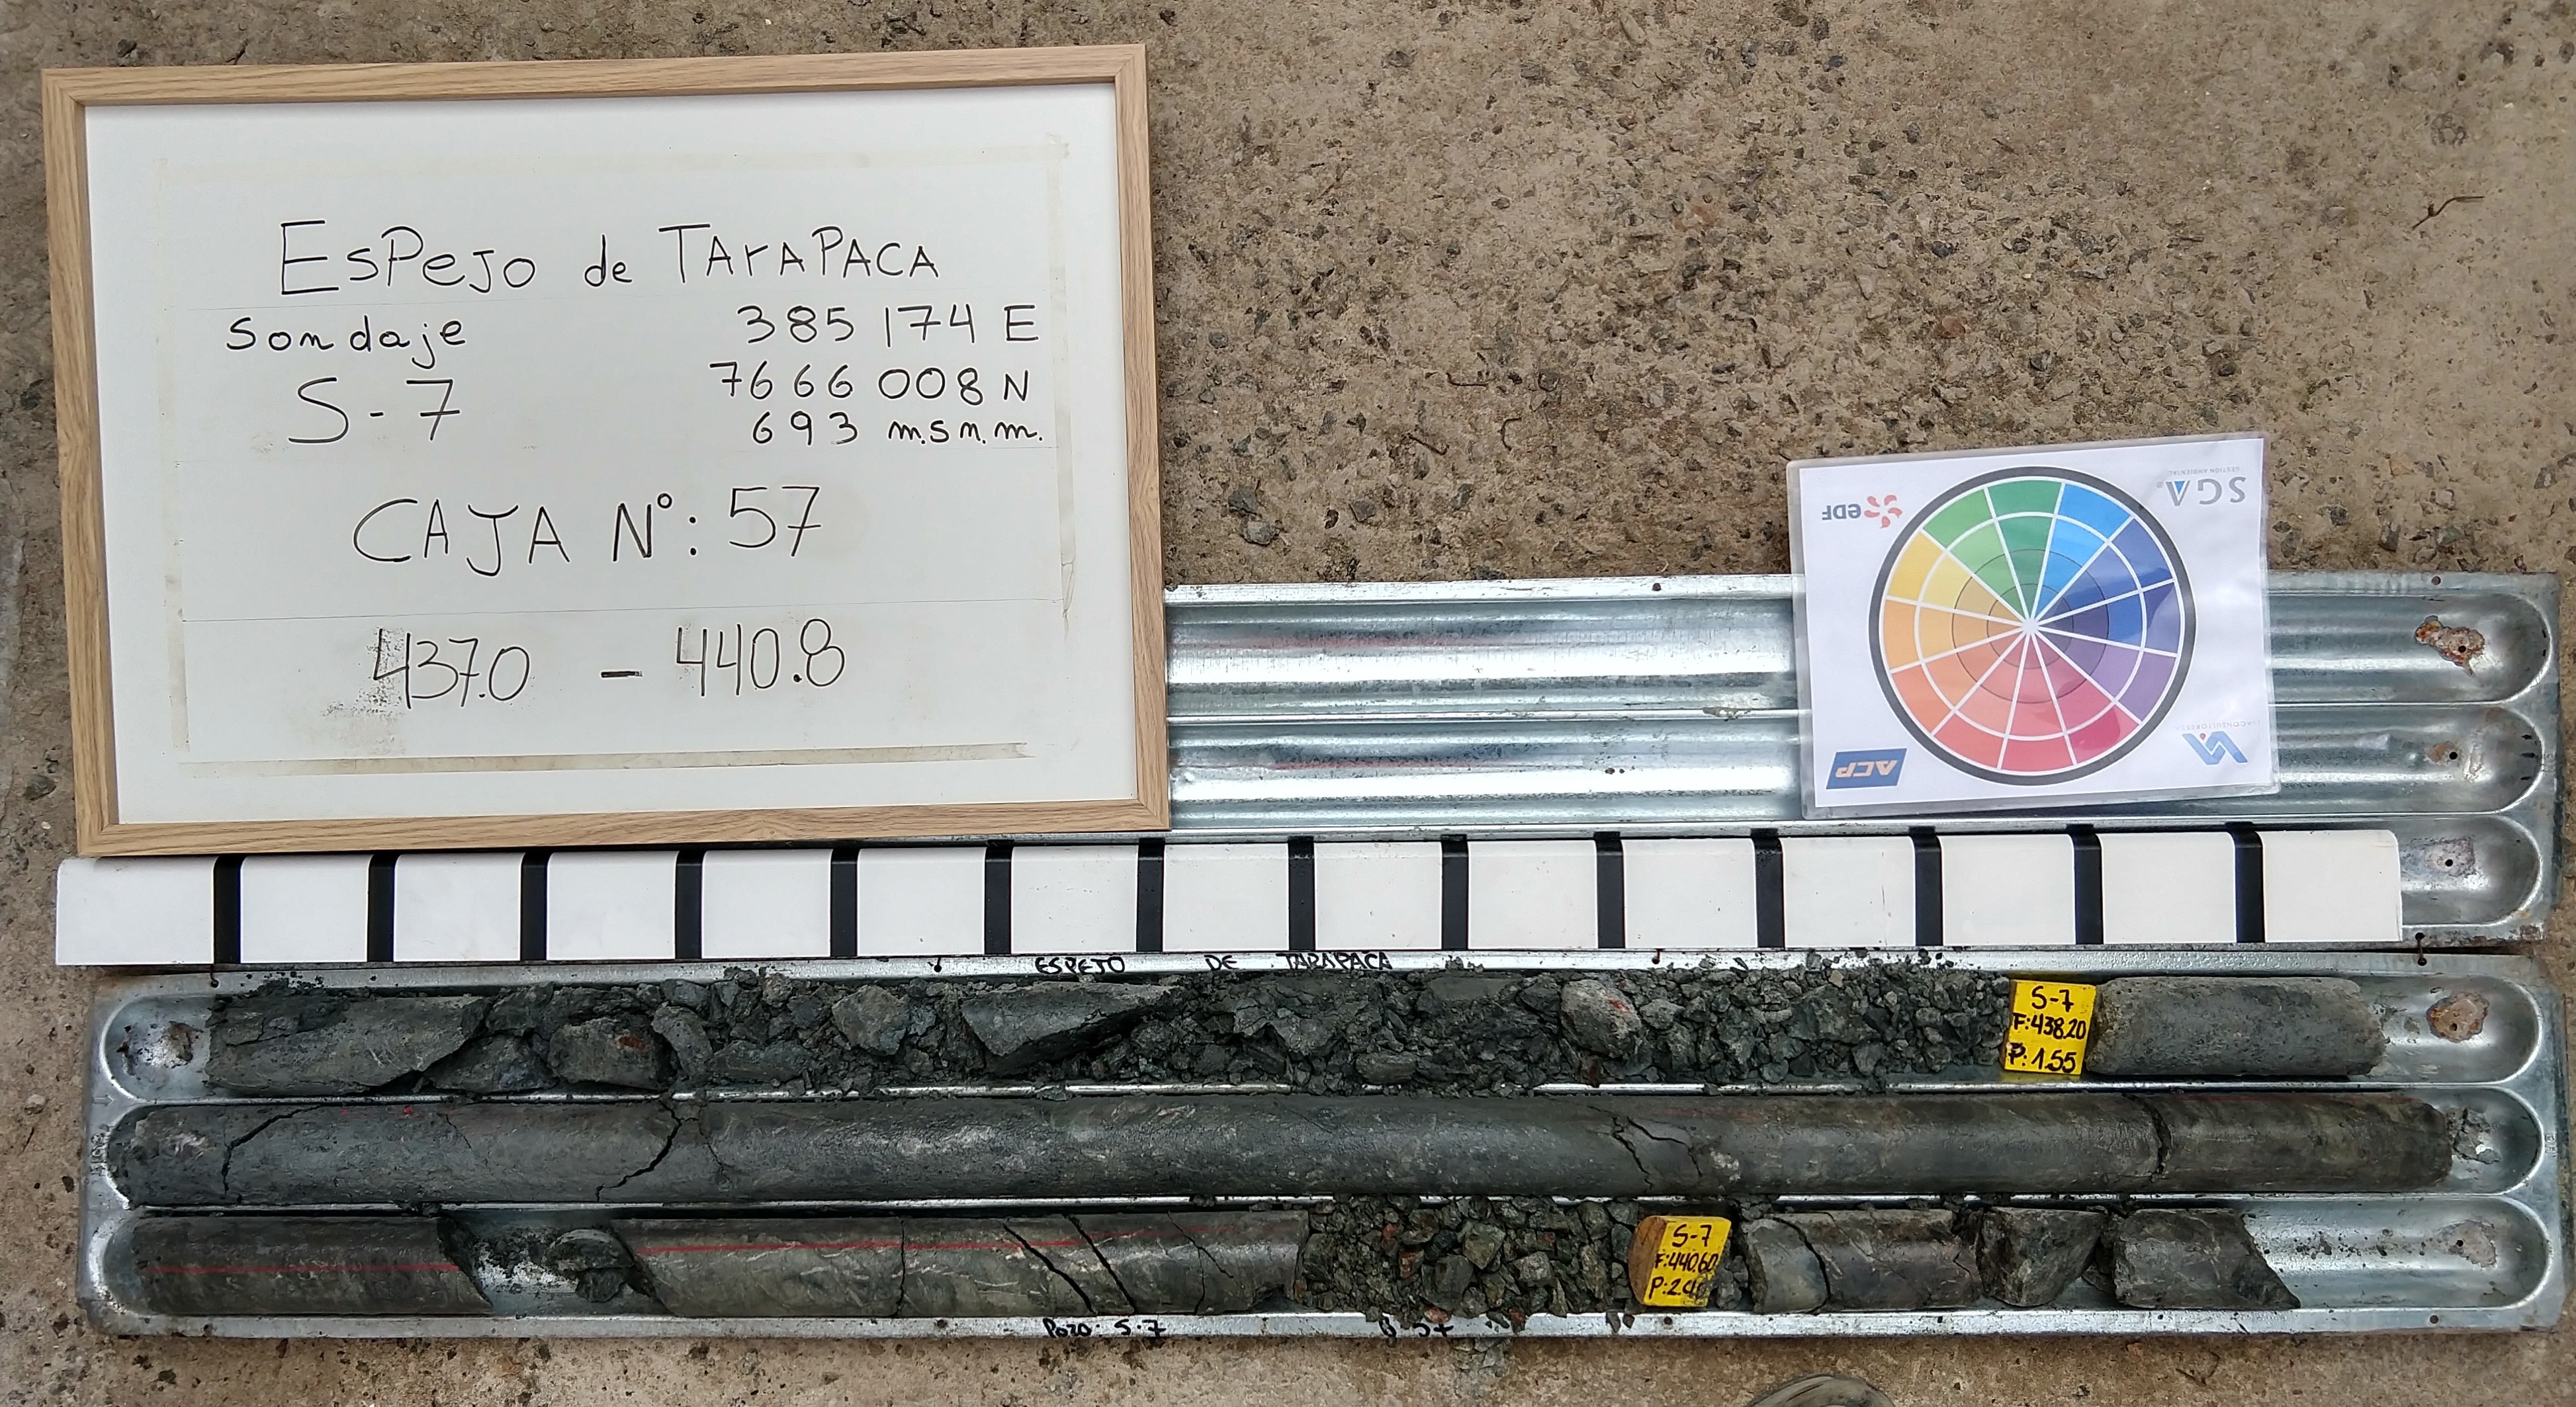 EsPeJo de TArAPACA
Sondaje
S-7
385174 E
7666008 N
693 m.s.n.m.
CAJA N°: 57
437.0 - 440.8
eDF
SGA
GESTION AMBIENTAL
ACP
ESPEJO DE TARAPACA
S-7
F:438.20
P:1.55
S-7
F:440.60
Pozo: S-7